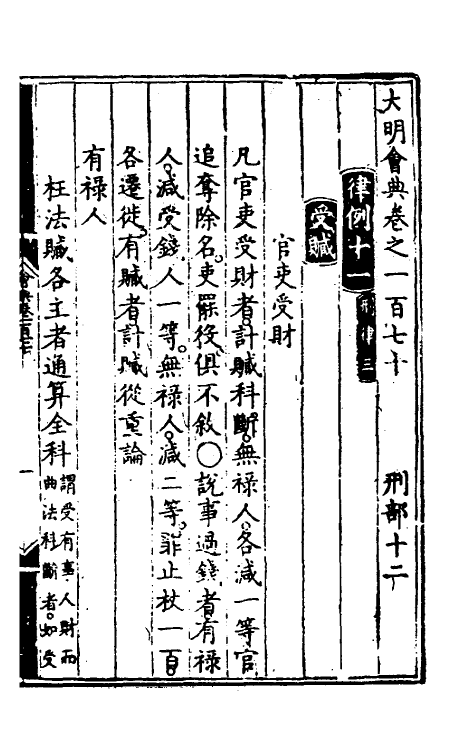 大明會典卷之一百七十 刑部十二
律例十一 刑律三
受贓
官吏受財
凡官吏受財者計贓科斷。無祿人。各減一等官
追奪除名。吏罷役俱不敘〇說事過錢者有祿
人。減受錢人一等。無祿人。減二等。罪止杖一百。
各遷徙。有贓者計贓從重論
有祿人
枉法贓各主者通算全科謂受有事人財而
曲法科斷者。如受